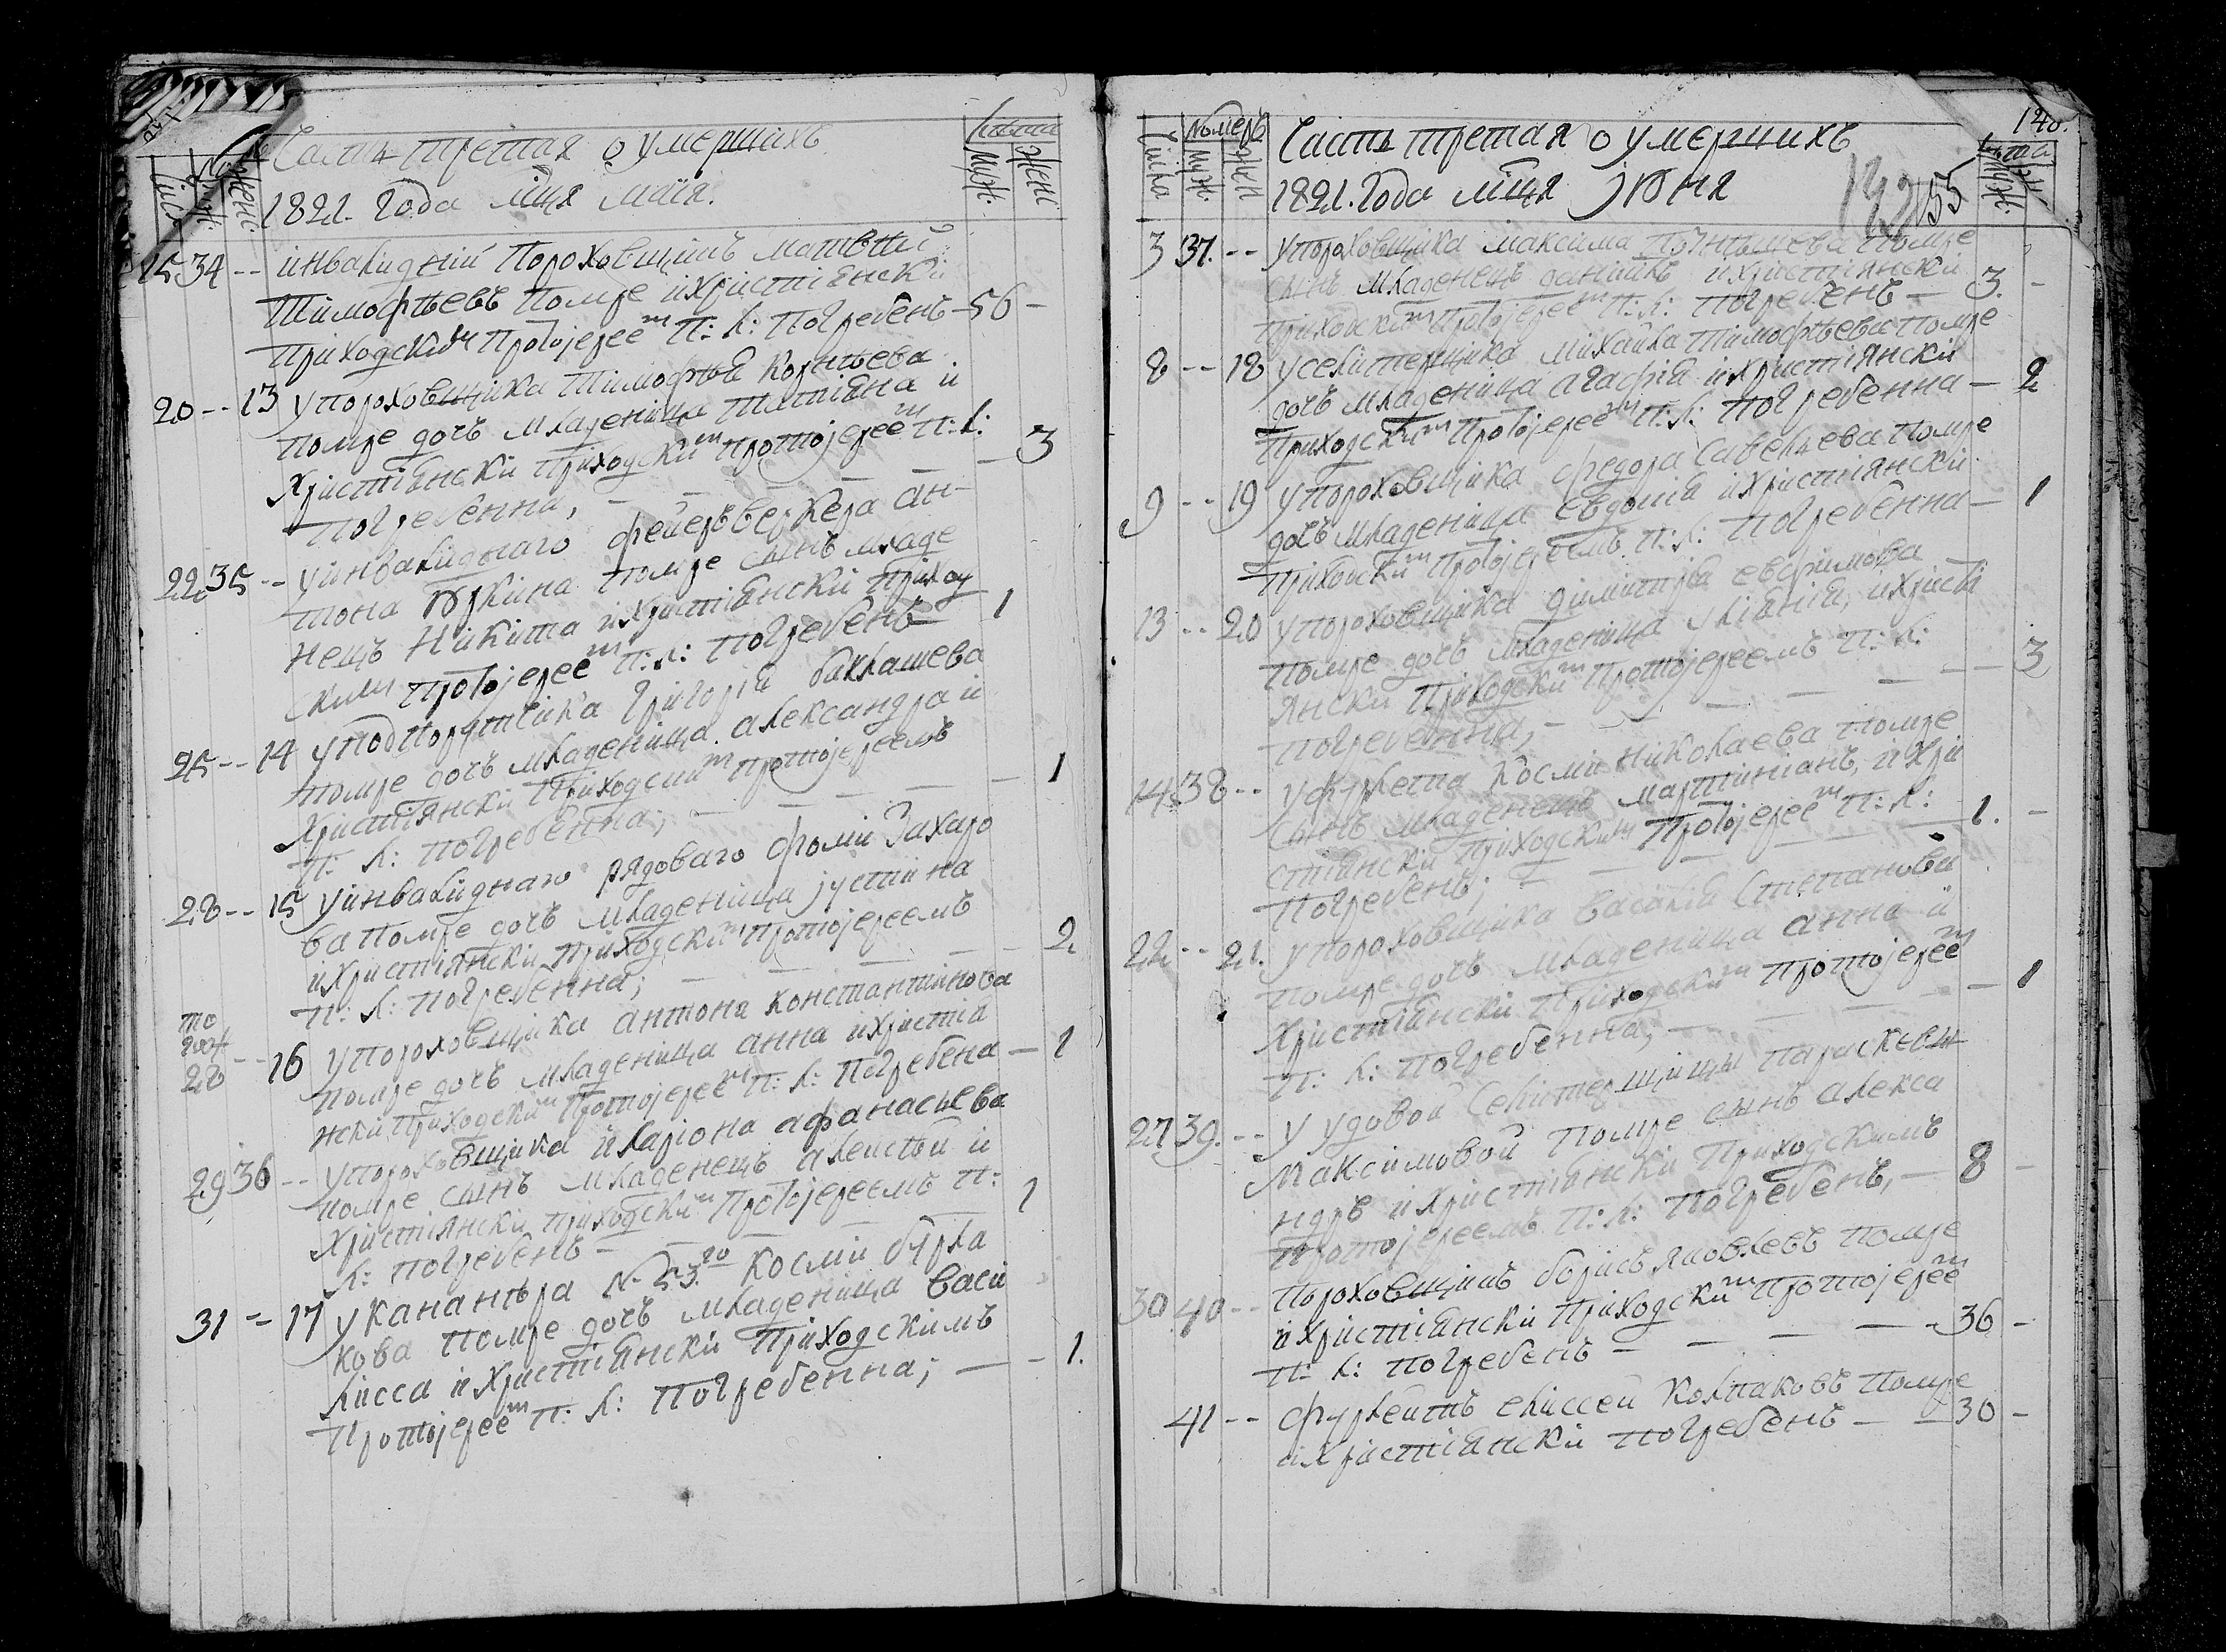 Часть третая о умершихъ
1821. года мца маія.
Лета
Муж: Женс:
Числа Муж: Женс:
15 34 -- инвалидній Пороховщикъ матвѣй
Тимофѣевъ Помре ихристіянски
Приходским Протоіерее т П: Л: Погребенъ - 56 -
20 -- 13 упороховщика Тимофѣя корнѣева
Помре дочъ младеница Татіяна и
Христіянски приходски т протоіерее т П: Л:
Погребенна, — — — — 3
22 35 -- уинвалиднаго фейерверкера ан-
тона Юркина помре сынъ младе
нецъ Никита ихристіянски Приход
ским протоіерее т П: Л: погребенъ 1
25 -- 14 уподпорутчика Григорія баклашева
помре дочъ младеница александра и
Христіянски Приходским т протоіереемъ
П: Л: погребенна; — — — — 1
28 -- 15 уинвалиднаго рядоваго фоми Захаро
ва помре дочъ младеница іустина
ихристіянски приходски т протоіереемъ
П: Л: погребенна; — — — — 2
то
гож
28 -- 16 упороховщика антона константинова
помре дочъ младеница анна ихристія
нски приходски т Протоіерее т П: Л: Погребена — 1
29 36 -- упороховщика иларіона афанасьева
помре сынъ младенецъ алексѣй и
Христіянски приходски т Протоіереемъ П:
Л: погребенъ — — — 1
31 -- 17 укананѣра №. 53. го Косми бурла
кова помре дочъ младеница васи
лисса и христіянски Приходскимъ
Протоіерее т П: Л: Погребенна; — - 1.
140.
132
55
Часть третая о умершихъ
1821. Года мца Іюня
Числа Номеръ Муж. Жен
Лета Муж.
3 37. -- упороховщика максима помре
сынъ младенецъ даниилъ ихристіянски
Приходски т протоіерее т П: Л: погребенъ — 3. -
8 -- 18 уселитерщика михаила тимофѣева помре
дочъ младеница агафія ихристіянски
Приходски т Протоіерее т П: Л: Погребенна — 2
9 -- 19 упороховщика федора Савельева помре
дочъ младеница евдокія ихристіянски
Приходски т протоіереемъ П: Л: Погребенна — 1
13 -- 20 упороховщика димитрія евфимова
помре дочъ младеница уліянія, ихристі
янски Приходски т Протоіереемъ П: Л:
погребенна, — — — — 3
14 38 -- уфурлета Косми николаева помре
сынъ младенецъ мартиніанъ, и хри
стіянски Приходским Протоіерее т П: Л:
погребенъ; — — — — 1. -
22 -- 21. упороховщика василія Степанова
помре дочъ младеница анна и
Христіянски Приходски т протоіерее т
П: Л: погребенна; — — — — 1
27 39. -- у удовой Селитерщицы параскевы
Максимовой помре сынъ алекса
ндръ и христіянски Приходскимъ
протоіереемъ П: Л: погребенъ, — 8 -
30 40 -- Пороховщикъ борисъ яковлевъ помре
и христіянски Приходски т Протоіерее т
П: Л: погребенъ — — — — 36 -
41 -- фурлейтъ елиссей Колпаковъ помре
ихристіянски погребенъ — — 30 -